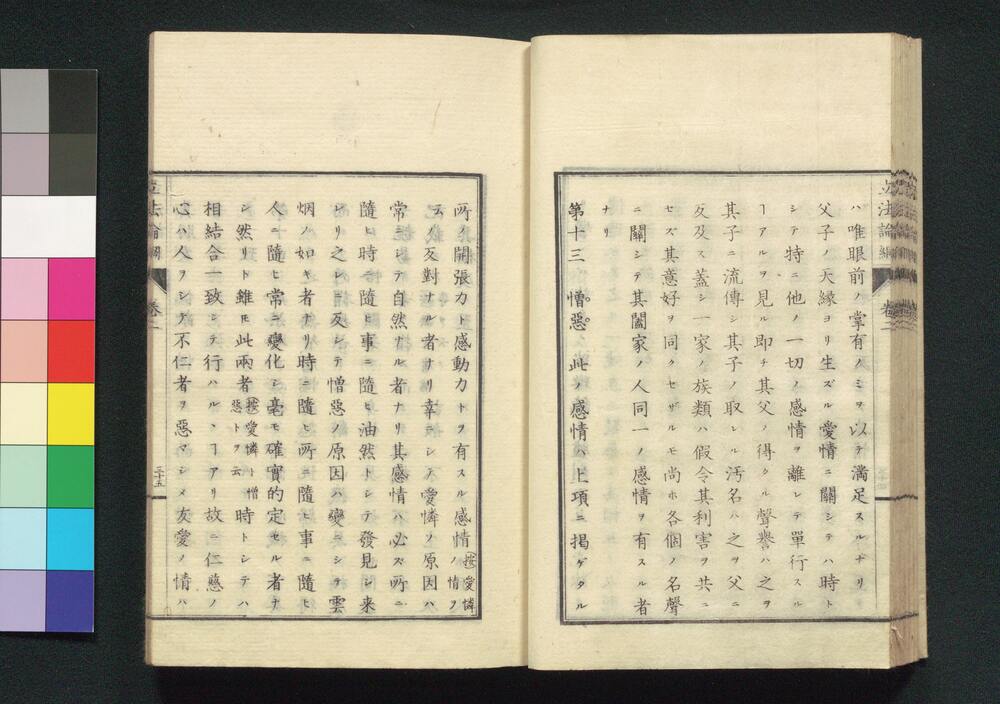 立法論綱 卷二
ハ唯眼前ノ掌有ノミヲ以テ滿足スルナリ
父子ノ天緣ヨリ生ズル愛情ニ關シテハ時ト
シテ特ニ他ノ一切ノ感情ヲ離レテ單行スル
ヿアルヲ見ル即チ其父ノ得タル聲譽ハ之ヲ
其子ニ流傳シ其子ノ取レル汚名ハ之ヲ父ニ
及及ス蓋シ一家ノ族類ハ假令其利害ヲ共ニ
セズ其意好ヲ同クセザルモ尚ホ各個ノ名聲
ニ關シテ其闔家ノ人同一ノ感情ヲ有スル者
ナリ
第十三 憎惡。此ノ感情ハ上項ニ掲ゲタル
所ノ開張力ト感動力トヲ有スル感情按愛憐ノ情ヲ
云フノ反對ナル者ナリ幸ニシテ愛憐ノ原因ハ
常ニシテ自然ナル者ナリ其感情ハ必ズ所ニ
隨ヒ時ニ隨ヒ事ニ隨ヒ油然トシテ發見シ来
ヒリ之レニ反シテ憎惡ノ原因ハ變ニシテ雲
烟ノ如キ者ナリ時ニ隨ヒ所ニ隨ヒ事ニ隨ヒ
人ニ隨ヒ常ニ變化シ毫モ確實的定セル者ナ
シ然リト雖𪜈此兩者按愛憐ト憎惡トヲ云時トシテハ
相結合一致シテ行ハルヽヿアリ故ニ仁慈ノ
心ハ人ヲシテ不仁者ヲ惡マシメ友愛ノ情ハ
立法論綱 卷二 三十五